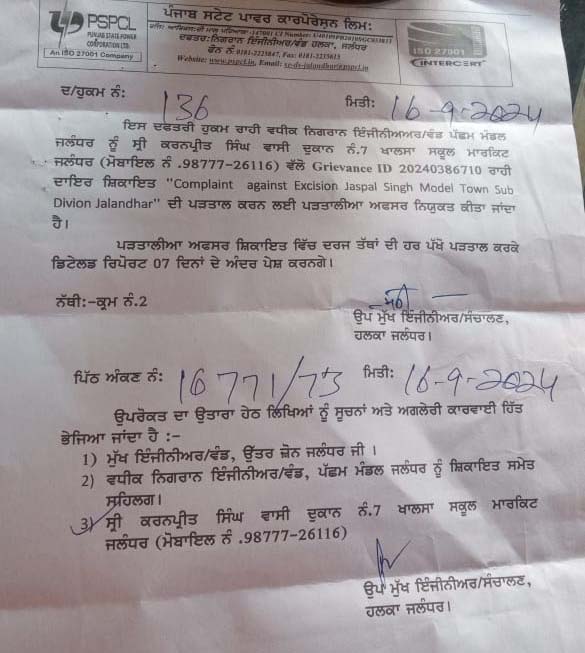 PSPCL
PUNJAB STATE POWER
CORPORATION LTD.
An ISO 27001 Company
ਪੰਜਾਬ ਸਟੇਟ ਪਾਵਰ ਕਾਰਪੋਰੇਸ਼ਨ ਲਿਮ:
ਦਫਤਰ:ਨਿਗਰਾਨ ਇੰਜੀਨੀਅਰ/ਵੰਡ ਹਲਕਾ, ਜਲੰਧਰ
ਫੋਨ ਨੰ 0181-2225847, Fax: 0181-2225015
Website: www.pspcl.in, Email: se-ds-jalandhar@pspcl.in
ISO 27001
INTERCERT
ਦ/ਹੁਕਮ ਨੰ: 136 ਮਿਤੀ: 16-9-2024
ਇਸ ਦਫਤਰੀ ਹੁਕਮ ਰਾਹੀ ਵਧੀਕ ਨਿਗਰਾਨ ਇੰਜੀਨੀਅਅਰ/ਵੰਡ ਪੱਛਮ ਮੰਡਲ
ਜਲੰਧਰ ਨੂੰ ਸ੍ਰੀ ਕਰਨਪ੍ਰੀਤ ਸਿੰਘ ਵਾਸੀ ਦੁਕਾਨ ਨੰ.7 ਖਾਲਸਾ ਸਕੂਲ ਮਾਰਕਿਟ
ਜਲੰਧਰ (ਮੋਬਾਇਲ ਨੰ .98777-26116) ਵੱਲੋ Grievance ID 20240386710 ਰਾਹੀ
ਦਾਇਰ ਸ਼ਿਕਾਇਤ "Complaint against Excision Jaspal Singh Model Town Sub
Divion Jalandhar" ਦੀ ਪੜਤਾਲ ਕਰਨ ਲਈ ਪੜਤਾਲੀਆ ਅਫਸਰ ਨਿਯੁਕਤ ਕੀਤਾ ਜਾਂਦਾ
ਹੈ।
ਪੜਤਾਲੀਆ ਅਫਸਰ ਸ਼ਿਕਾਇਤ ਵਿੱਚ ਦਰਜ ਤੱਥਾਂ ਦੀ ਹਰ ਪੱਖੋ ਪੜਤਾਲ ਕਰਕੇ
ਡਿਟੇਲਡ ਰਿਪੋਰਟ 07 ਦਿਨਾਂ ਦੇ ਅੰਦਰ ਪੇਸ਼ ਕਰਨਗੇ।
ਨੱਥੀ:-ਕ੍ਰਮ ਨੰ.2
ਉਪ ਮੁੱਖ ਇੰਜੀਨੀਅਰ/ਸੰਚਾਲਣ,
ਹਲਕਾ ਜਲੰਧਰ।
ਪਿੱਠ ਅੰਕਣ ਨੰ: 16771/73 ਮਿਤੀ: 16-9-2024
ਉਪਰੋਕਤ ਦਾ ਉਤਾਰਾ ਹੇਠ ਲਿਖਿਆਂ ਨੂੰ ਸੂਚਨਾਂ ਅਤੇ ਅਗਲੇਰੀ ਕਾਰਵਾਈ ਹਿੱਤ
ਭੇਜਿਆ ਜਾਂਦਾ ਹੈ :-
1) ਮੁੱਖ ਇੰਜੀਨੀਅਰ/ਵੰਡ, ਉੱਤਰ ਜ਼ੋਨ ਜਲੰਧਰ ਜੀ ।
2) ਵਧੀਕ ਨਿਗਰਾਨ ਇੰਜੀਨੀਅਰ/ਵੰਡ, ਪੱਛਮ ਮੰਡਲ ਜਲੰਧਰ ਨੂੰ ਸ਼ਿਕਾਇਤ ਸਮੇਤ
ਸਹਿਲਗ।
3) ਸ੍ਰੀ ਕਰਨਪ੍ਰੀਤ ਸਿੰਘ ਵਾਸੀ ਦੁਕਾਨ ਨੰ.7 ਖਾਲਸਾ ਸਕੂਲ ਮਾਰਕਿਟ
ਜਲੰਧਰ (ਮੋਬਾਇਲ ਨੰ .98777-26116)
ਉਪ ਮੁੱਖ ਇੰਜੀਨੀਅਰ/ਸੰਚਾਲਣ,
ਹਲਕਾ ਜਲੰਧਰ।